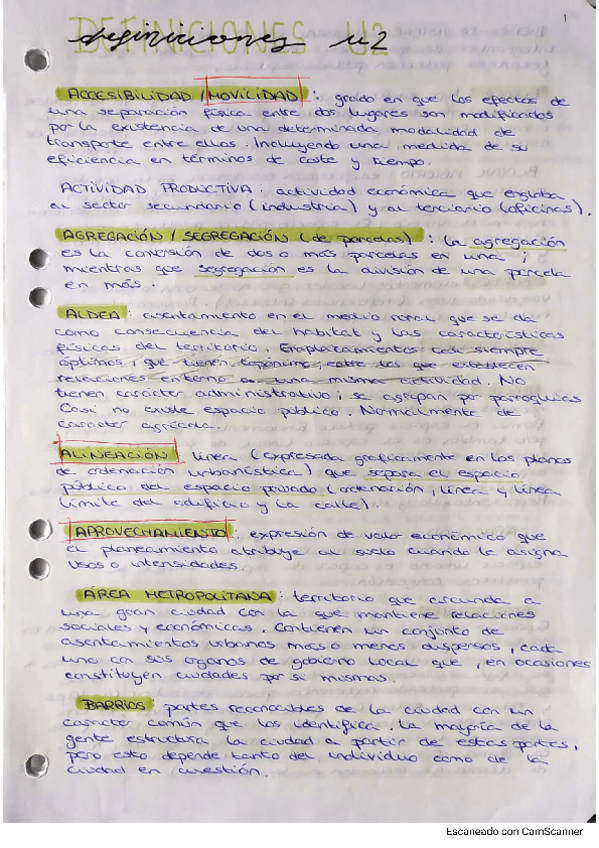 1
DEFINICIONES U2
definiciones u2
ACCESIBILIDAD / MOVILIDAD : grado en que los efectos de
una separación física entre dos lugares son modificados
por la existencia de una determinada modalidad de
transporte entre ellas. Incluyendo una medida de su
eficiencia en términos de coste y tiempo.
ACTIVIDAD PRODUCTIVA : actividad económica que engloba
al sector secundario (industria) y al terciario (oficinas).
AGREGACIÓN / SEGREGACIÓN (de parcelas) : la agregación
es la conversión de dos o más parcelas en una ;
mientras que segregación es la división de una parcela
en más.
ALDEA : asentamiento en el medio rural que se da
como consecuencia del habitat y las características
físicas del territorio. Emplazamientos casi siempre
óptimos, que tienen topónimo, entre los que establecen
relaciones entorno a una misma actividad. No
tienen carácter administrativo ; se agrupan por parroquias
Casi no existe espacio público. Normalmente de
caracter agrícola.
ALINEACIÓN línea (expresada graficamente en los planos
de ordenación urbanística) que separa el espacio
público del espacio privado (ordenación, línea y línea
límite del edificio y la calle)
APROVECHAMIENTO : expresión de valor económico que
el planeamiento atribuye al suelo cuando le asigna
usos o intensidades.
ÁREA METROPOLITANA : territorio que circunda a
una gran ciudad con la que mantiene relaciones
sociales y económicas. Contienen un conjunto de
asentamientos urbanos mas o menos dispersos, cada
uno con sus organos de gobierno local que, en ocasiones
constituyen ciudades por si mismas.
BARRIOS : partes reconocibles de la ciudad con un
caracter común que los identifica. La mayoría de la
gente estructura la ciudad a partir de estas partes,
pero esto depende tanto del individuo como de la
ciudad en cuestión.
Escaneado con CamScanner